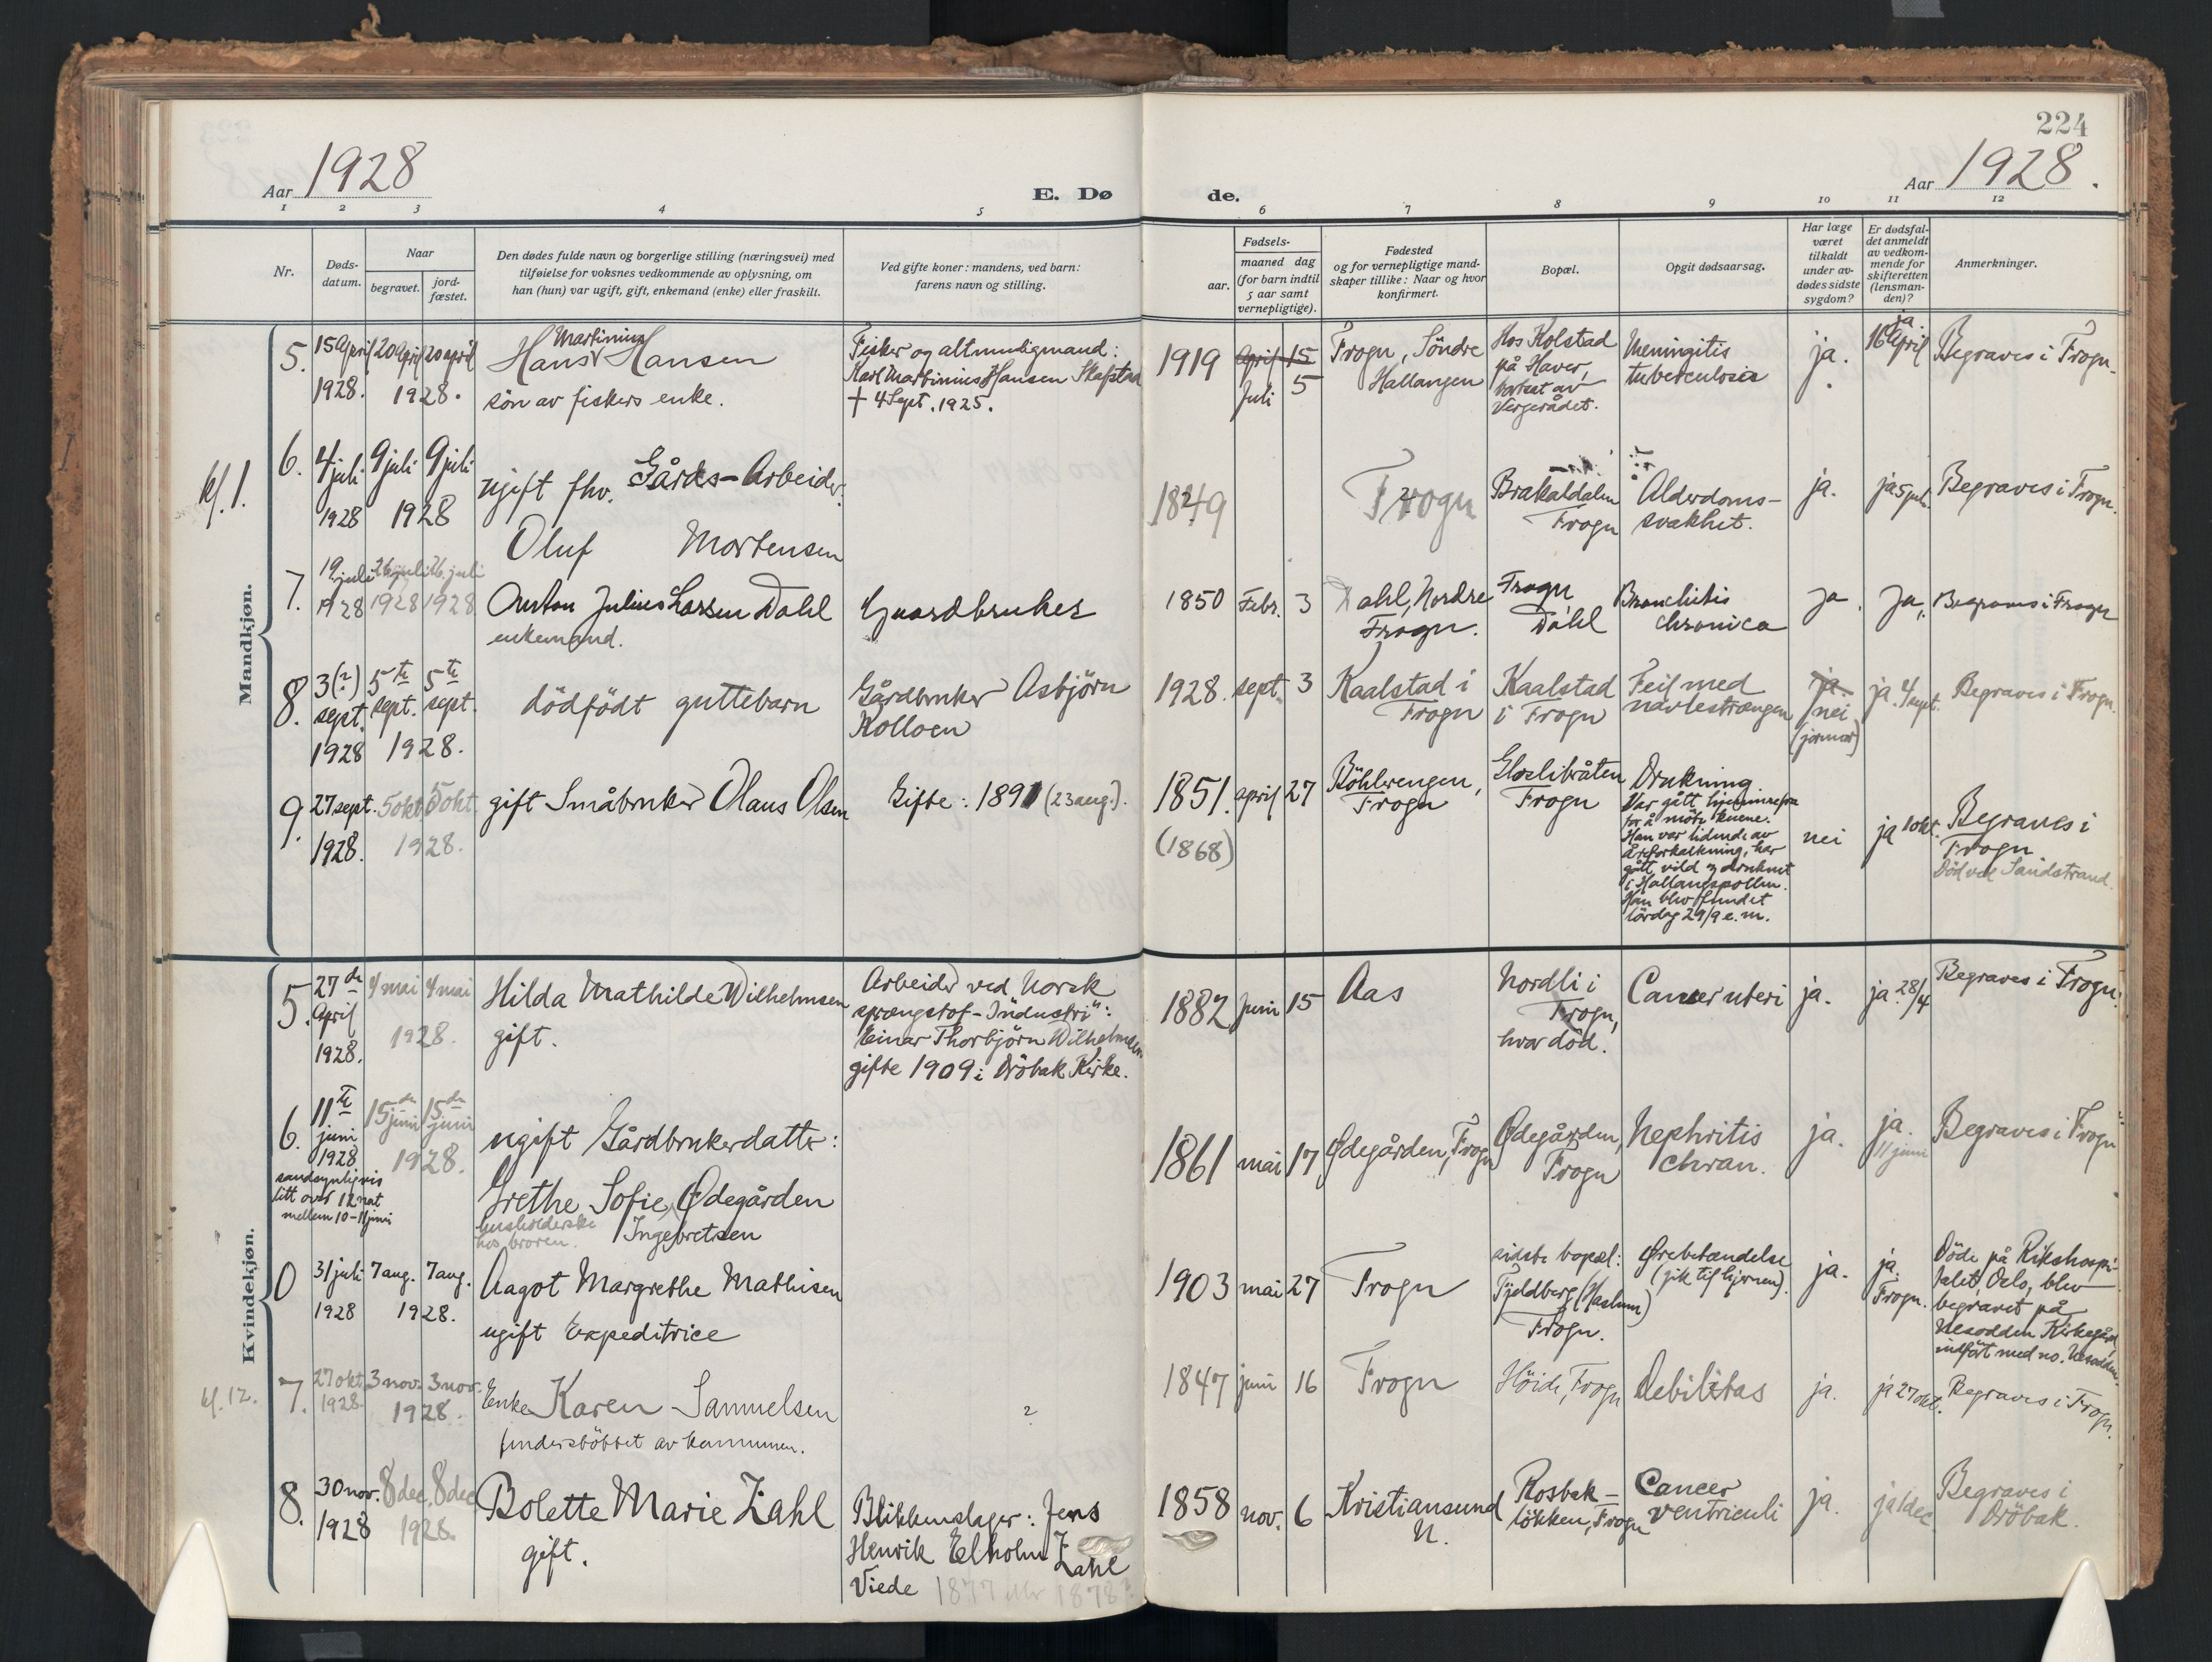 224
Aar 1928
E. Dø
de.
Aar 1928.
1 2 3 4 5 6 7 8 9 10 11 12
Nr.
Døds-
datum.
Naar
begravet.
jord-
fæstet.
Den dødes fulde navn og borgerlige stilling (næringsvei) med
tilføielse for voksnes vedkommende av oplysning, om
han (hun) var ugift, gift, enkemand (enke) eller fraskilt.
Ved gifte koner: mandens, ved barn:
farens navn og stilling.
Fødsels-
aar.
maaned dag
(for barn indtil
5 aar samt
vernepligtige).
Fødested
og for vernepligtige mand-
skaper tillike: Naar og hvor
konfirmert.
Bopæl.
Opgit dødsaarsag.
Har læge
været
tilkaldt
under av-
dødes sidste
sygdom?
Er dødsfal-
det anmeldt
av vedkom-
mende for
skifteretten
(lensman-
den)?
Anmerkninger.
Mandkjøn.
5.
15 April
1928.
20 April 20 april
1928.
Martinius
Hans Hansen
sön av fiskers enke.
Fisker og altmuligmand:
Karl Martinius Hansen Skafstad
† 4 Sept. 1925.
1919
April 15
Juli 5
Frogn, Söndre
Hallangen
Hos Kolstad
på Haver,
bortsat av
Vergerådet.
Meningitis
tuberculosis
ja.
ja
16 April
Begraves i Frogn.
kl. 1.
6.
4 juli
1928
9 juli 9 juli
1928
ugift fhv. Gårds-Arbeider.
Oluf Mortensen
1849
Frogn
Brakaldalen
Frogn
Alderdoms-
svakhet.
ja.
ja 5 juli
Begraves i Frogn.
7.
19 juli
1928
26 juli 26. juli
1928 1928
Anton Julius Larsen Dahl
enkemand.
Gaardbruker
1850 Febr. 3
Dahl, Nordre
Frogn.
Frogn
Dahl
Bronchitis
chronica
ja.
Ja.
Begraves i Frogn
8.
3(?)
sept.
1928
5te
sept.
5te
sept.
1928.
dödfödt guttebarn
Gårdbruker Asbjörn
Kolloen
1928. sept. 3
Kaalstad i
Frogn
Kaalstad
i Frogn
Feil med
navlestrængen
ja.
nei
(jormor)
ja. 4 sept.
Begraves i Frogn.
9.
27 sept.
1928.
5 okt 5 okt
1928.
gift Småbruker Olaus Olsen
Gifte: 1891 (23 aug.).
1851. april 27
(1868)
Böhlerengen,
Frogn
Glœlibråten
Frogn
Drukning
Var gått hjemmefra
for å möte kuene.
Han var lidende av
Åreforkalkning, har
gått vild og druknet
i Hallangspollen.
Han blev fundet
lördag 29/9 e. m.
nei
ja 1 okt.
Begraves i
Frogn
Död ved Sandstrand.
Kvindekjøn.
5.
27de
April
1928.
4 mai 4 mai
1928.
Hilda Mathilde Wilhelmsen
gift.
Arbeider ved Norsk
sprængstof-Industri":
Einar Thorbjörn Wilhelmsen
gifte 1909 i Dröbak Kirke.
1882 juni 15
Aas
Nordli i
Frogn,
hvor död.
Cancer uteri
ja.
ja. 28/4
Begraves i Frogn.
6.
11te
juni
1928
sandsynligvis
litt over 12 nat
mellem 10-11 juni
15de
juni
15de
juni
1928.
ugift Gårdbrukerdatter:
Grethe Sofie Ødegården
Ingebretsen
husholderske
hos broren.
1861 mai 17
Ødegården, Frogn
Ødegården,
Frogn
Nephritis
chron.
ja.
ja.
11 juni
Begraves i Frogn
0
31 juli
1928
7 aug. 7 aug.
1928.
Aagot Margrethe Mathisen
ugift Expeditrice
1903 mai 27
Frogn
sidste bopæl:
Fjeldberg (Haslum)
Frogn.
Ørebetændelse
(gik til hjernen).
ja.
ja.
Frogn.
Döde på Rikshospi-
talet, Oslo, blev
begravet på
Nesodden Kirkegård,
indfört med no. Nesodden.
kl. 12.
7.
27 okt
1928
3 nov. 3 nov.
1928.
Enke Karen Samuelsen
understöttet av kommunen.
?
1847 juni 16
Frogn
Höide, Frogn
Debilitas
ja.
ja 27 okt.
Begraves i Frogn.
8.
30 nov.
1928
8 dec. 8 dec
1928.
Bolette Marie Zahl
gift.
Blikkenslager: Jens
Henrik Elholm Zahl
Viede 1877 eller 1878?
1858 nov. 6
Kristiansund
N.
Rosbak-
lökken, Frogn
Cancer
ventriculi
ja.
ja 1 dec.
Begraves i
Dröbak.